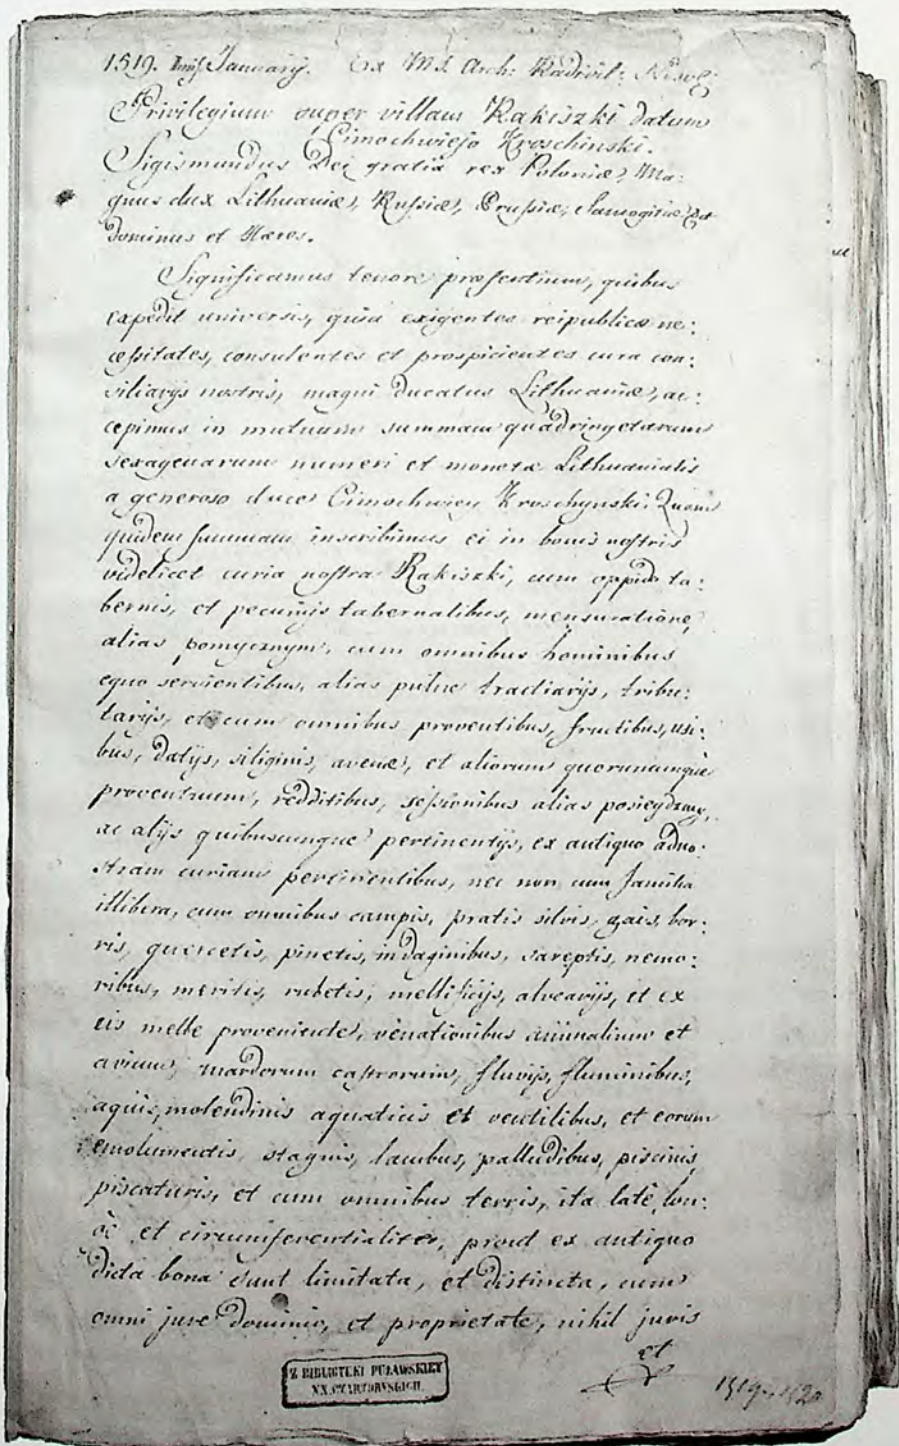 1519. Januarij. Ex MS. Arch: Radivil: Nisv:
Privilegium super villam Rakiszki datum
Cimochwiejo Kroschinski.
Sigismundus Dei gratia rex Poloniæ, Ma:
gnus dux Lithuaniæ, Rußiæ, Prußiæ, Samogitiæ
dominus et Hæres.
Significamus tenore præsentium, quibus
expedit universis, quia exigentes reipublicæ ne:
ceßitates, consulentes et prospicientes cum con:
siliarijs nostris, magni ducatus Lithuaniæ, ac:
cepimus in mutuum summam quadringetarum
sexagenarum numeri et monetæ Lithuanialis
a generoso duce Cimochwiey Kroschynski. Quam
quidem summam inscribimus ei in bonis nostris
videlicet curia nostra Rakiszki, cum oppido ta:
bernis, et pecunijs tabernalibus, mensuratione,
alias pomycznym, cum omnibus hominibus
equo servientibus, alias putne tractiarijs, tribu:
tarijs, et cum omnibus proventibus, fructibus, usi:
bus, datijs, siliginis, avenæ, et aliorum quorumcumque
proventuum, redditibus, seßionibus alias
ac alijs quibuscumque pertinentijs, ex antiquo adno:
stram curiam pertinentibus, nec non cum familia
illibera, cum omnibus campis, pratis silvis, gais, bor:
ris, quercetis, pinetis, indaginibus, sareptis, nemo:
ribus, mericis, rubetis, mellificijs, alvearijs, et ex
eis melle proveniente, venationibus animalium et
avium, mardorum castrorum, fluvijs, fluminibus,
aquis, molendinis aquaticis et ventilibus, et eorum
emolumentis, stagnis, lacubus, palludibus, piscinis,
piscaturis, et cum omnibus terris, ita late, lon:
ge et circumferentialiter, prout ex antiquo
dicta bona sunt limitata, et distincta, cum
omni jure dominio, et proprietate, nihil juris
et
Z BIBLIOTEKI PUŁAWSKIEY
XX. CZARTORYSKICH.
1519-1520